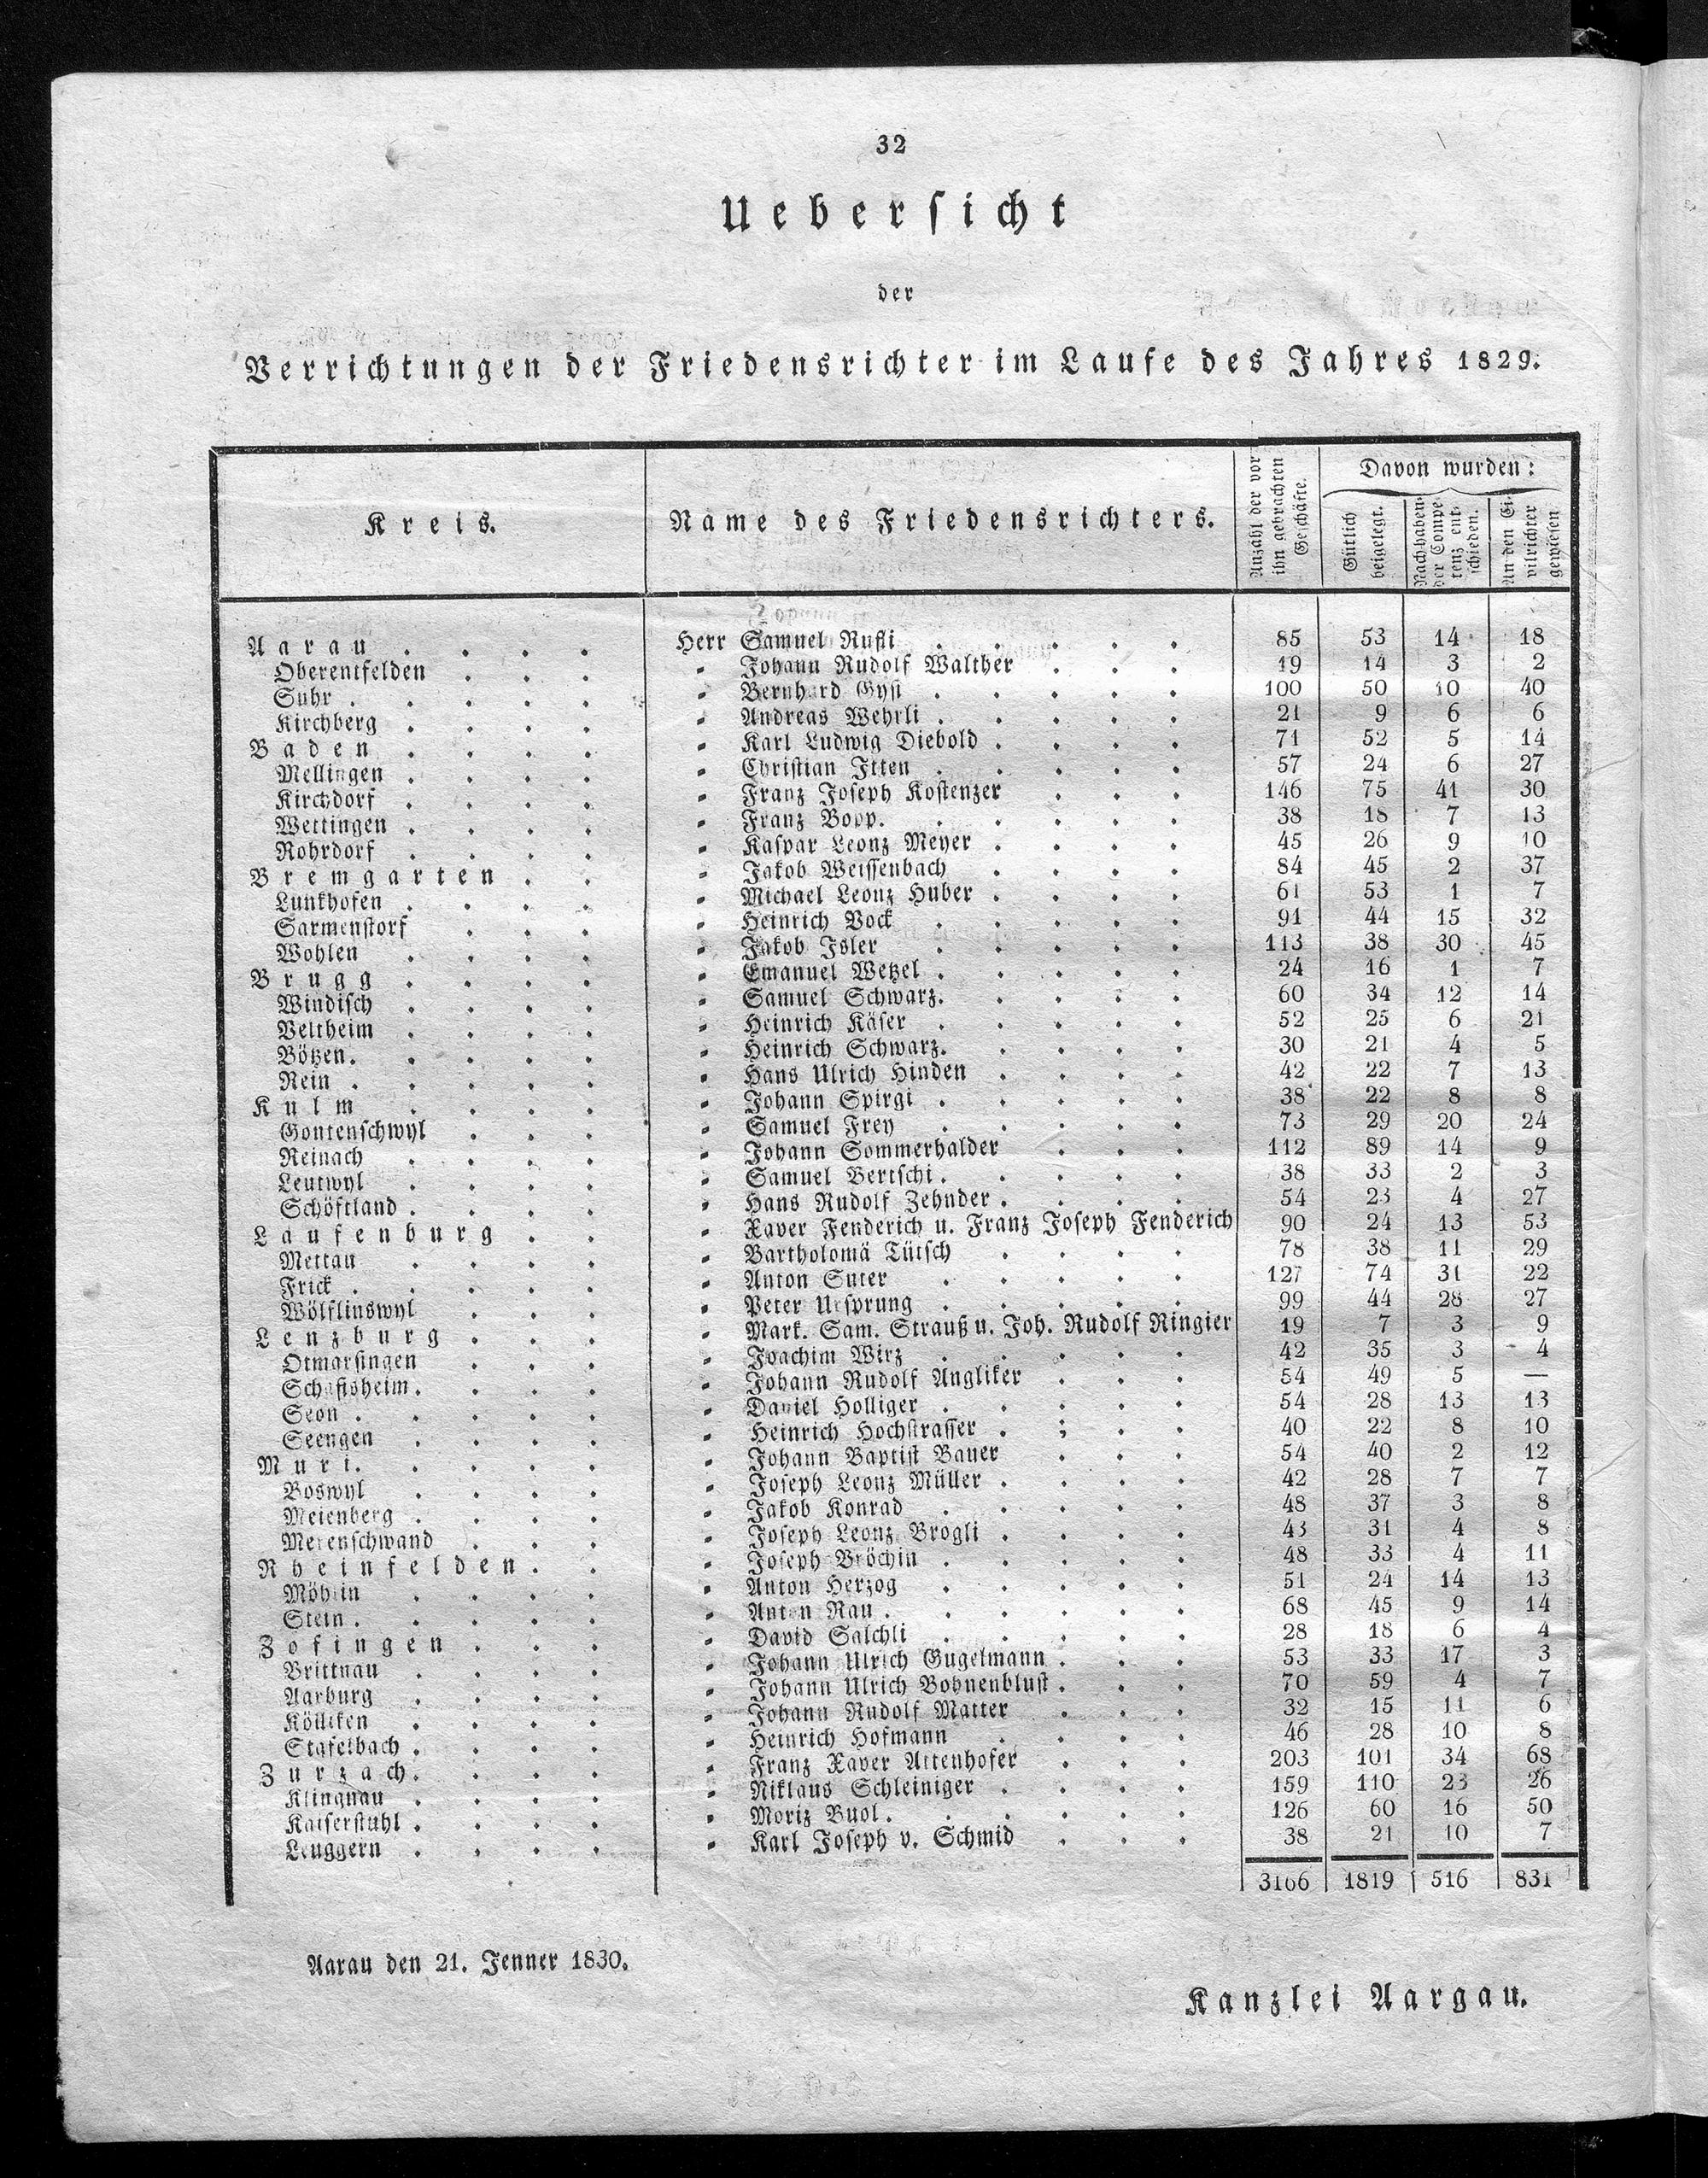 32
Uebersicht
der
Verrichtungen der Friedensrichter im Laufe des Jahres 1829.
Kreis. Name des Friedensrichters. Anzahl der vor ihn gebrachten Geschäfte. Davon wurden: Gütlich beigelegt. Nach habender Competenz entschieden. An den Civilrichter gewiesen
Aarau . . . . Herr Samuel Rufli . . . . . 85 53 14 18
Oberentfelden . . . - Johann Rudolf Walther . . . 19 14 3 2
Suhr . . . . . - Bernhard Gysi . . . . . 100 50 10 40
Kirchberg . . . . - Andreas Wehrli . . . . . 21 9 6 6
Baden . . . . - Karl Ludwig Diebold . . . . 71 52 5 14
Mellingen . . . . - Christian Itten . . . . . 57 24 6 27
Kirchdorf . . . . - Franz Joseph Kostenzer . . . 146 75 41 30
Wettingen . . . . - Franz Bopp. . . . . . 38 18 7 13
Rohrdorf . . . . - Kaspar Leonz Meyer . . . . 45 26 9 10
Bremgarten . . - Jakob Weissenbach . . . . 84 45 2 37
Lunkhofen . . . . - Michael Leonz Huber . . . . 61 53 1 7
Sarmenstorf . . . - Heinrich Vock . . . . . 91 44 15 32
Wohlen . . . . - Jakob Isler . . . . . 113 38 30 45
Brugg . . . . - Emanuel Wetzel . . . . . 24 16 1 7
Windisch . . . . - Samuel Schwarz. . . . . 60 34 12 14
Veltheim . . . . - Heinrich Käser . . . . . 52 25 6 21
Bötzen. . . . . - Heinrich Schwarz. . . . . 30 21 4 5
Rein . . . . . - Hans Ulrich Hinden . . . . 42 22 7 13
Kulm . . . . - Johann Spirgi . . . . . 38 22 8 8
Gontenschwyl . . . - Samuel Frey . . . . . 73 29 20 24
Reinach . . . . - Johann Sommerhalder . . . 112 89 14 9
Leutwyl . . . . - Samuel Bertschi. . . . . 38 33 2 3
Schöftland . . . . - Hans Rudolf Zehnder . . . . 54 23 4 27
Laufenburg . . - Xaver Fenderich u. Franz Joseph Fenderich 90 24 13 53
Mettau . . . . - Bartholomä Tütsch . . . . 78 38 11 29
Frick . . . . . - Anton Suter . . . . . 127 74 31 22
Wölflinswyl . . . - Peter Ursprung . . . . . 99 44 28 27
Lenzburg . . . - Mark. Sam. Strauß u. Joh. Rudolf Ringier 19 7 3 9
Otmarsingen . . . - Joachim Wirz . . . . . 42 35 3 4
Schafisheim. . . . - Johann Rudolf Angliker . . . 54 49 5 —
Seon . . . . . - Daniel Holliger . . . . . 54 28 13 13
Seengen . . . . - Heinrich Hochstrasser . . . . 40 22 8 10
Muri. . . . . - Johann Baptist Bauer . . . 54 40 2 12
Boswyl . . . . - Joseph Leonz Müller . . . . 42 28 7 7
Meienberg . . . . - Jakob Konrad . . . . . 48 37 3 8
Merenschwand . . . - Joseph Leonz Brogli . . . . 43 31 4 8
Rheinfelden . . - Joseph Bröchin . . . . . 48 33 4 11
Möhlin . . . . - Anton Herzog . . . . . 51 24 14 13
Stein . . . . . - Anton Rau . . . . . . 68 45 9 14
Zofingen . . . - David Salchli . . . . . 28 18 6 4
Brittnau . . . . - Johann Ulrich Gugelmann . . . 53 33 17 3
Aarburg . . . . - Johann Ulrich Bohnenblust. . . 70 59 4 7
Kölliken . . . . - Johann Rudolf Matter . . . 32 15 11 6
Stafelbach . . . . - Heinrich Hofmann . . . . 46 28 10 8
Zurzach. . . . - Franz Xaver Attenhofer . . . 203 101 34 68
Klingnau . . . . - Niklaus Schleiniger . . . . 159 110 23 26
Kaiserstuhl . . . . - Moriz Buol. . . . . . 126 60 16 50
Leuggern . . . . - Karl Joseph v. Schmid . . . 38 21 10 7
3166 1819 516 831
Aarau den 21. Jenner 1830.
Kanzlei Aargau.